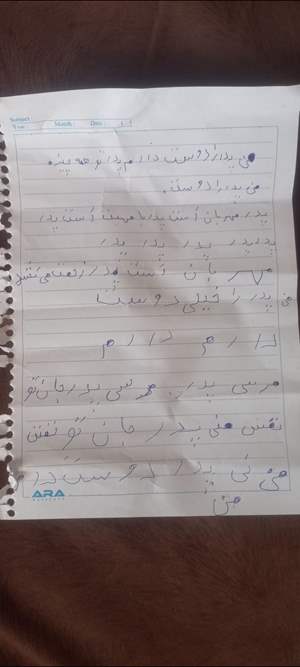 Subject:
Year: Month: Date:
من پدر را دوست دارم پدر تو همه چیز.
من پدر را دوست.
پدر مهربان است پدر مهربان است پدر
پدر پدر پدر پدر پدر
مهر بان است پدر زحمت می‌کشد
من پدر را خیلی دوست
دارم دارم
مرسی پدر. مرسی پدر جان تو
نفس منی پدر جان تو نفس
منی پدر دوست دارم
من
ARA